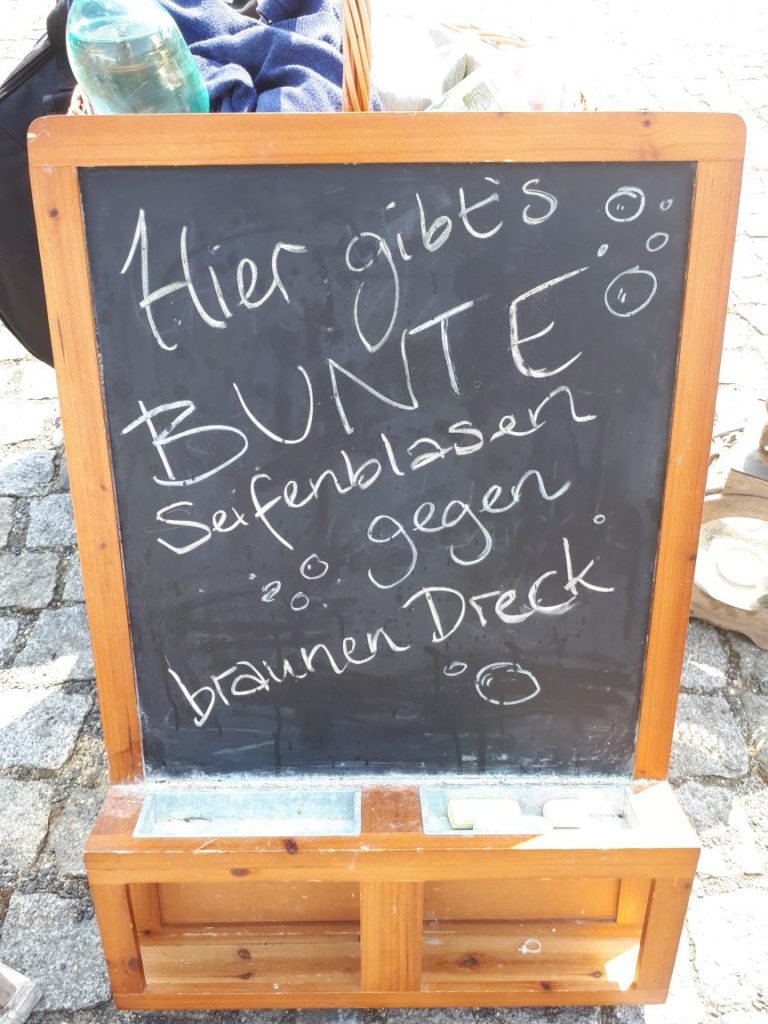 Hier gibt's
BUNTE
Seifenblasen
gegen
braunen Dreck